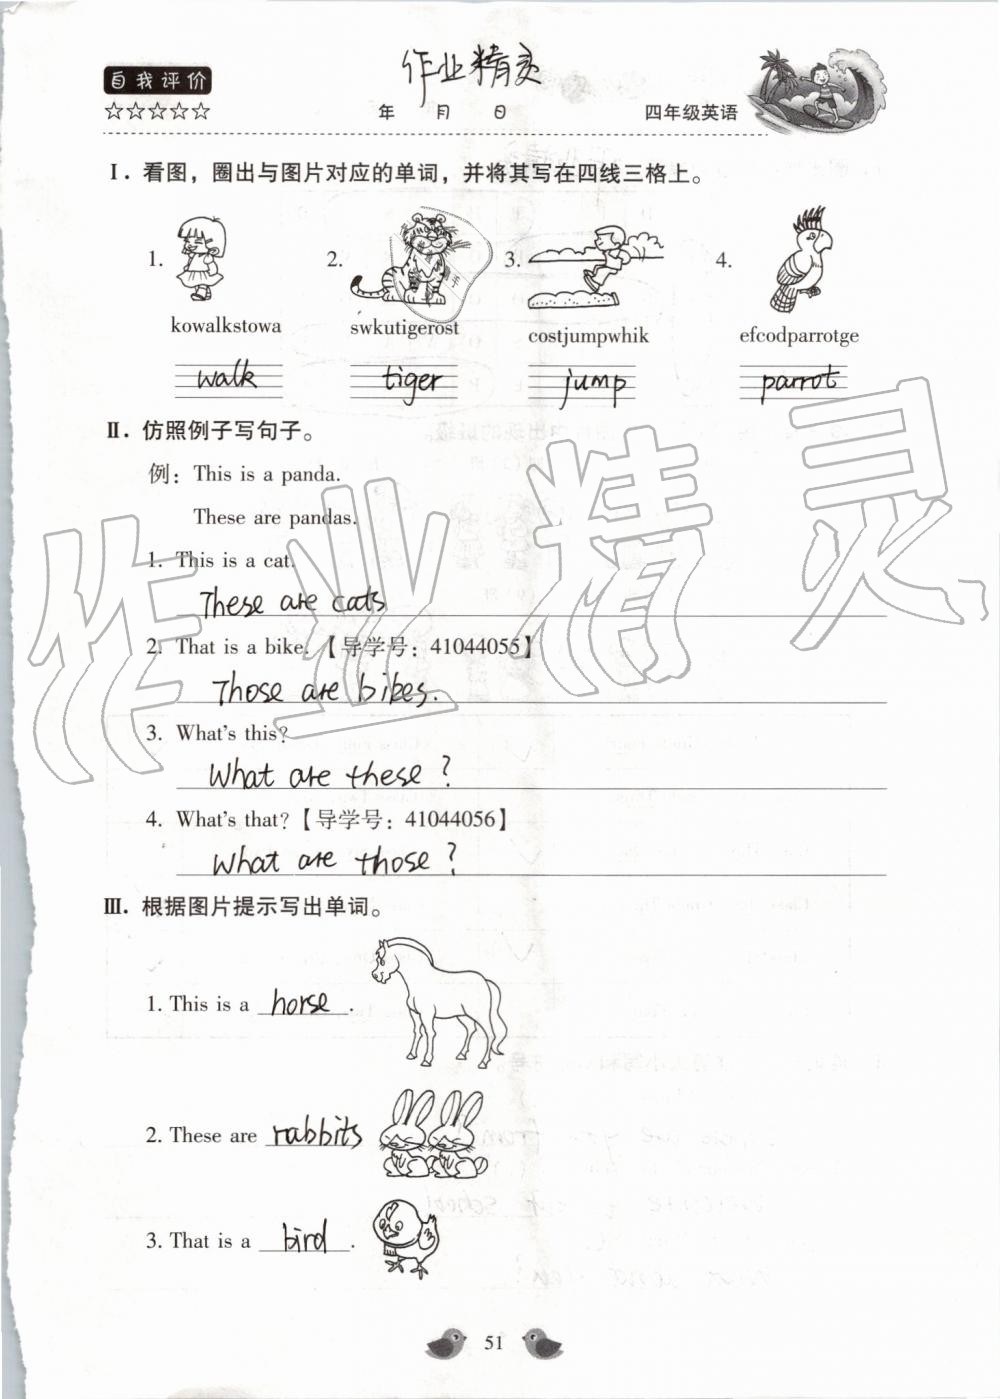 作业精灵
自我评价
☆☆☆☆☆ 年 月 日 四年级英语
Ⅰ. 看图，圈出与图片对应的单词，并将其写在四线三格上。
1. 2. 3. 4.
kowalkstowa swkutigerost costjumpwhik efcodparrotge
walk tiger jump parrot
Ⅱ. 仿照例子写句子。
例：This is a panda.
These are pandas.
1. This is a cat.
These are cats
2. That is a bike.【导学号：41044055】
Those are bikes.
3. What's this?
What are these?
4. What's that?【导学号：41044056】
What are those?
Ⅲ. 根据图片提示写出单词。
1. This is a horse.
2. These are rabbits
3. That is a bird.
51
作业精灵